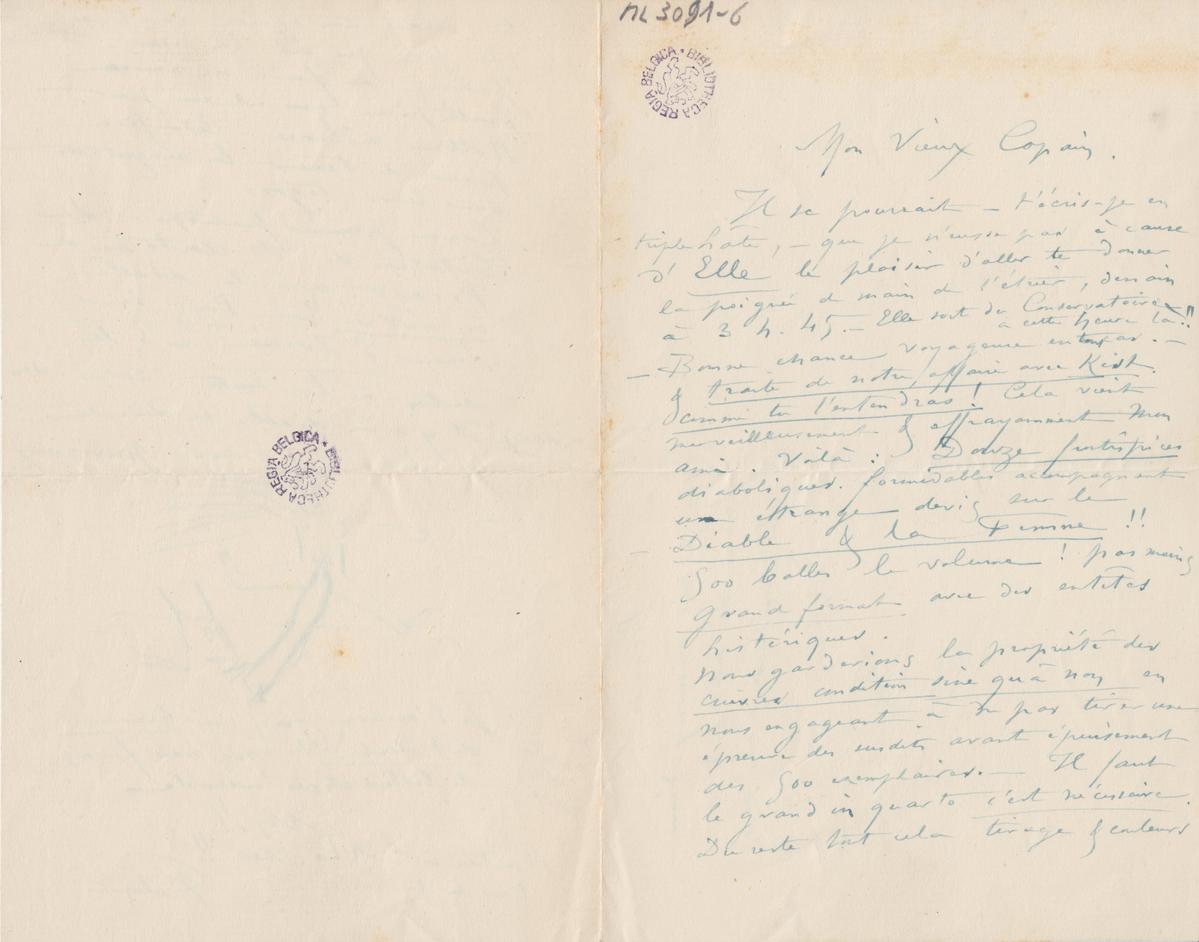 BIBLIOTHECA REGIA BELGICA
ML 3091-6
BIBLIOTHECA REGIA BELGICA
Mon Vieux Copain.
Il se pourrait – t'écris-je en
triple hâte, – que je n'eusse pas à cause
d'Elle le plaisir d'aller te donner
la poignée de main de l'étrier, demain
à 3 h. 45. – Elle sort du Conservatoire
à cette heure là!!
– Bonne chance voyageuse en tout cas. –
& traite de notre affaire avec Kist.
comme tu l'entendras! Cela vient
merveilleusement & effrayamment Mon
ami. Voilà : Douze frontispices
diaboliques. formidables accompagnent
un étrange devis sur le
Diable & la Femme !!
500 balles le volume ! pas moins
grand format avec des entêtes
histériques.
Nous garderions la propriété des
cuivres condition sine quâ non en
nous engageant à ne pas tirer une
épreuve des susdits avant épuisement
des 500 exemplaires. – Il faut
le grand in quarto c'est nécessaire.
Du reste tout cela tirage & couleurs